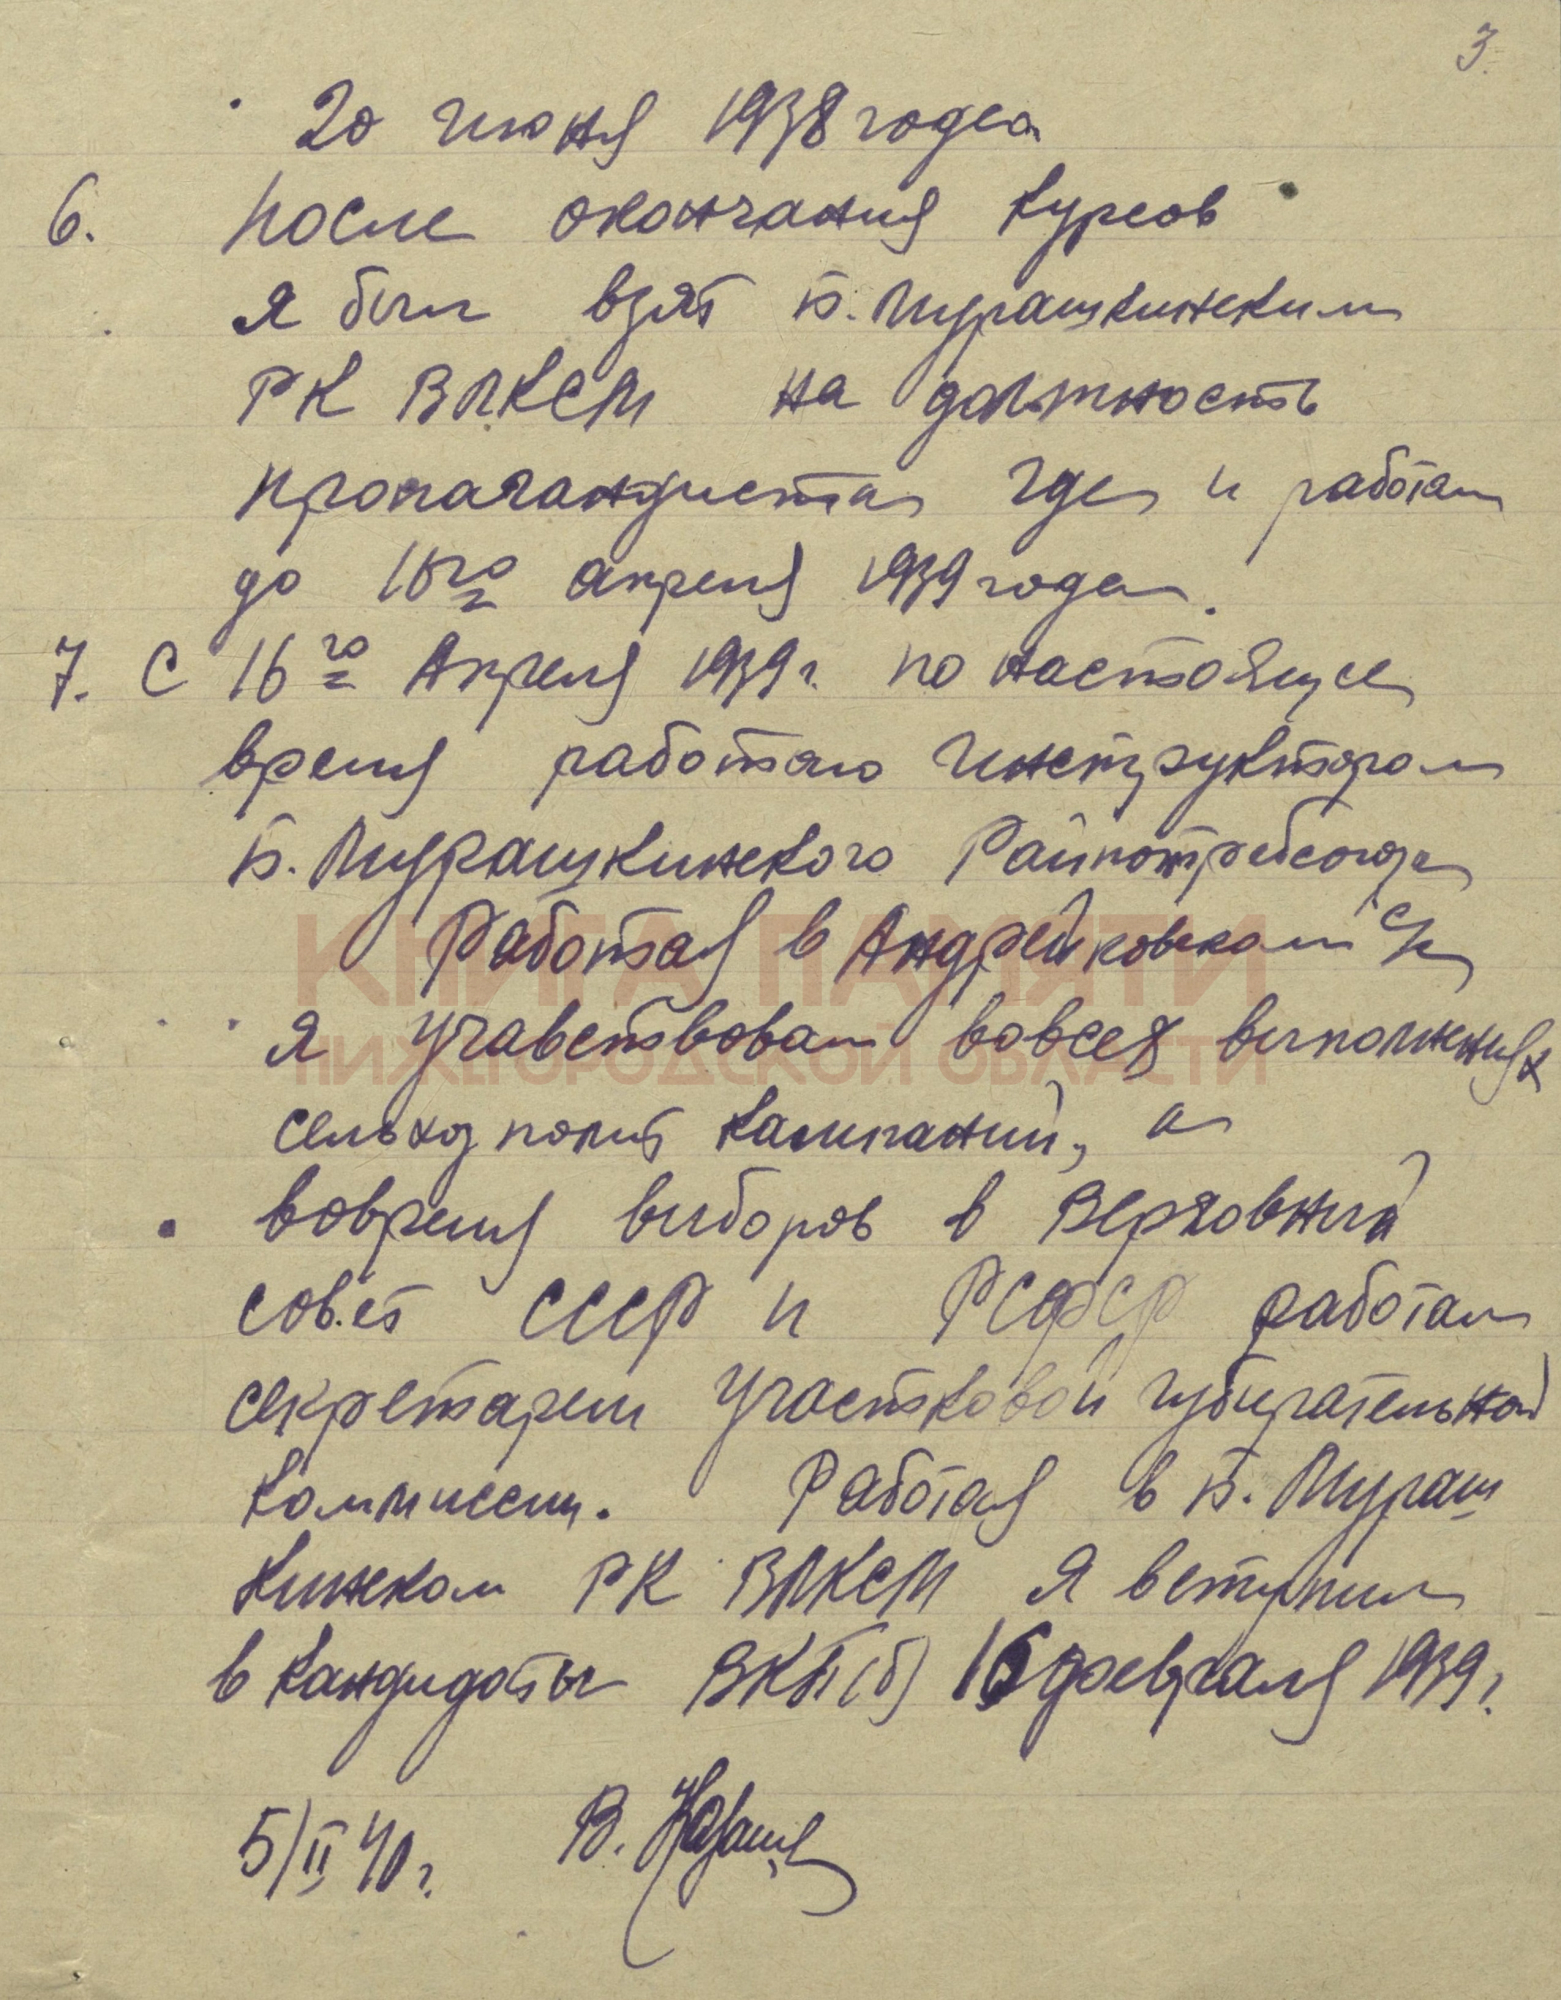 3.
20 июня 1938 года
6. После окончания курсов
я был взят Б. Мурашкинским
РК ВЛКСМ на должность
пропагандиста где и работал
до 16го апреля 1939 года.
7. С 16го Апреля 1939 г. по настоящее
время работаю инструктором
Б. Мурашкинского Райпотребсоюза
Работая в Андрейковском с/с
КНИГА ПАМЯТИ
я учавствовал вовсех выполнениях
НИЖЕГОРОДСКОЙ ОБЛАСТИ
сельхоз полит кампаний, а
вовремя выборов в Верховный
совет СССР и РСФСР работал
секретарем участковой избирательной
коммиссии. Работая в Б. Мураш
кинском РК ВЛКСМ я вступил
в кандидаты ВКП(б) 16 февраля 1939 г.
5/II 40 г. В.